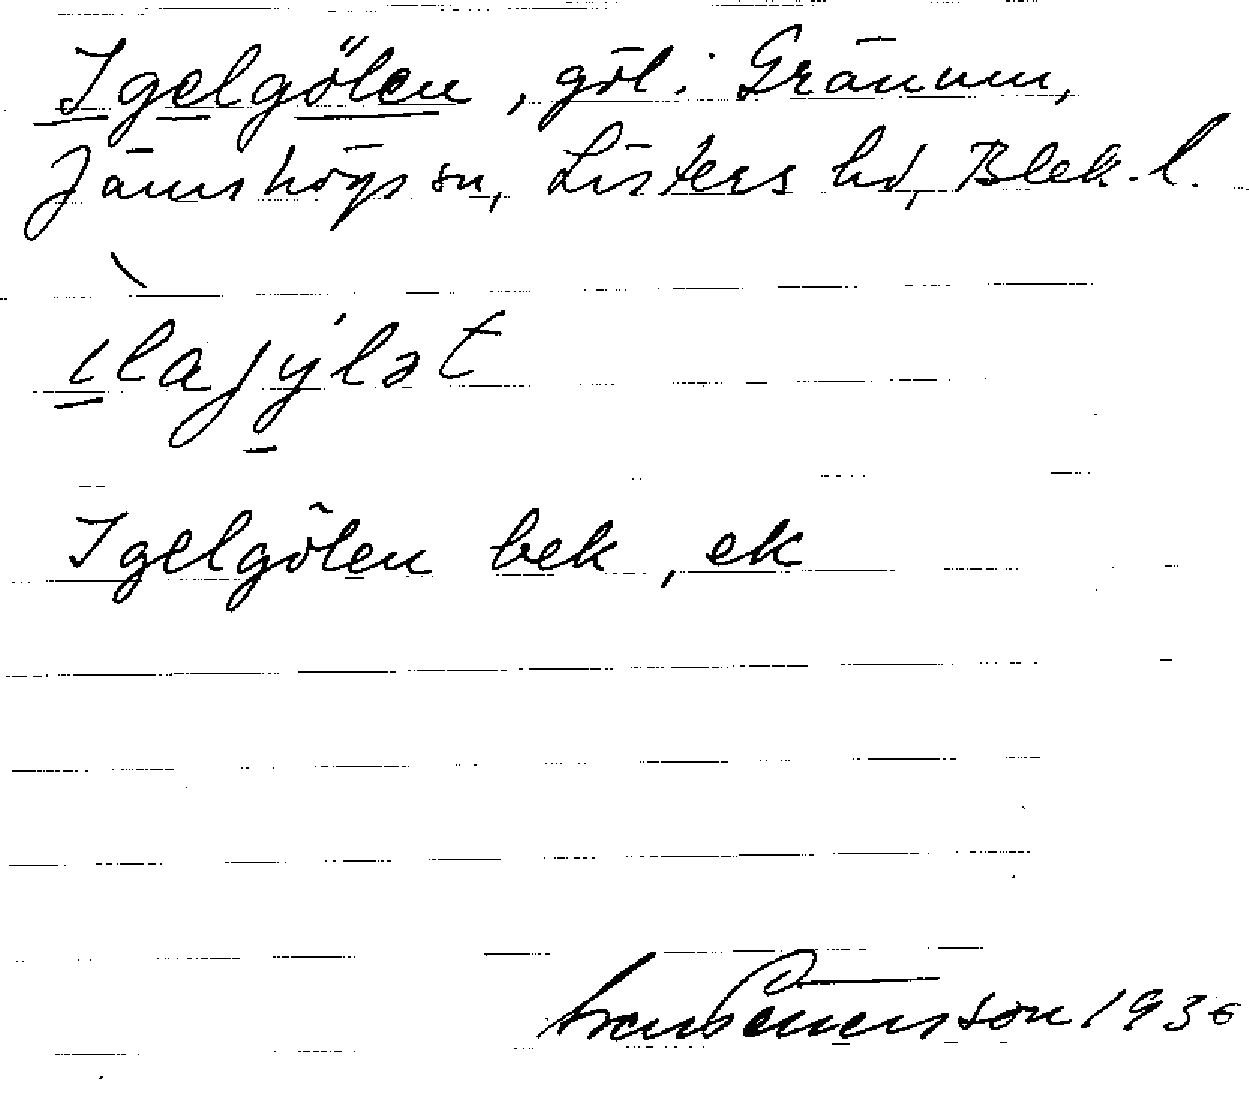 Igelgölen, göl i Gränum,
Jämshögs sn, Listers hd, Blek. l.
ılajy̍lət
Igelgölen bek, ek
1936